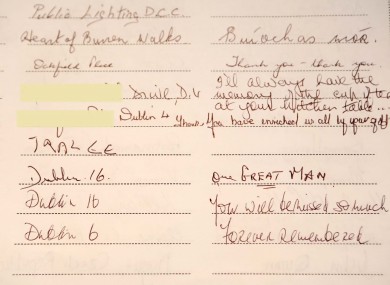 Public Lighting D.C.C.
Heart of Burren Walks Buíochas mór.
Place Thank you - thank you.
Drive, D. I'll always have the
memory of the cup of tea
Dublin 4 at your kitchen table...
You have enriched us all by your gift
TRALEE
Dublin 16. One GREAT MAN
Dublin 16 You will be missed so much
Dublin 6 Forever Remembered